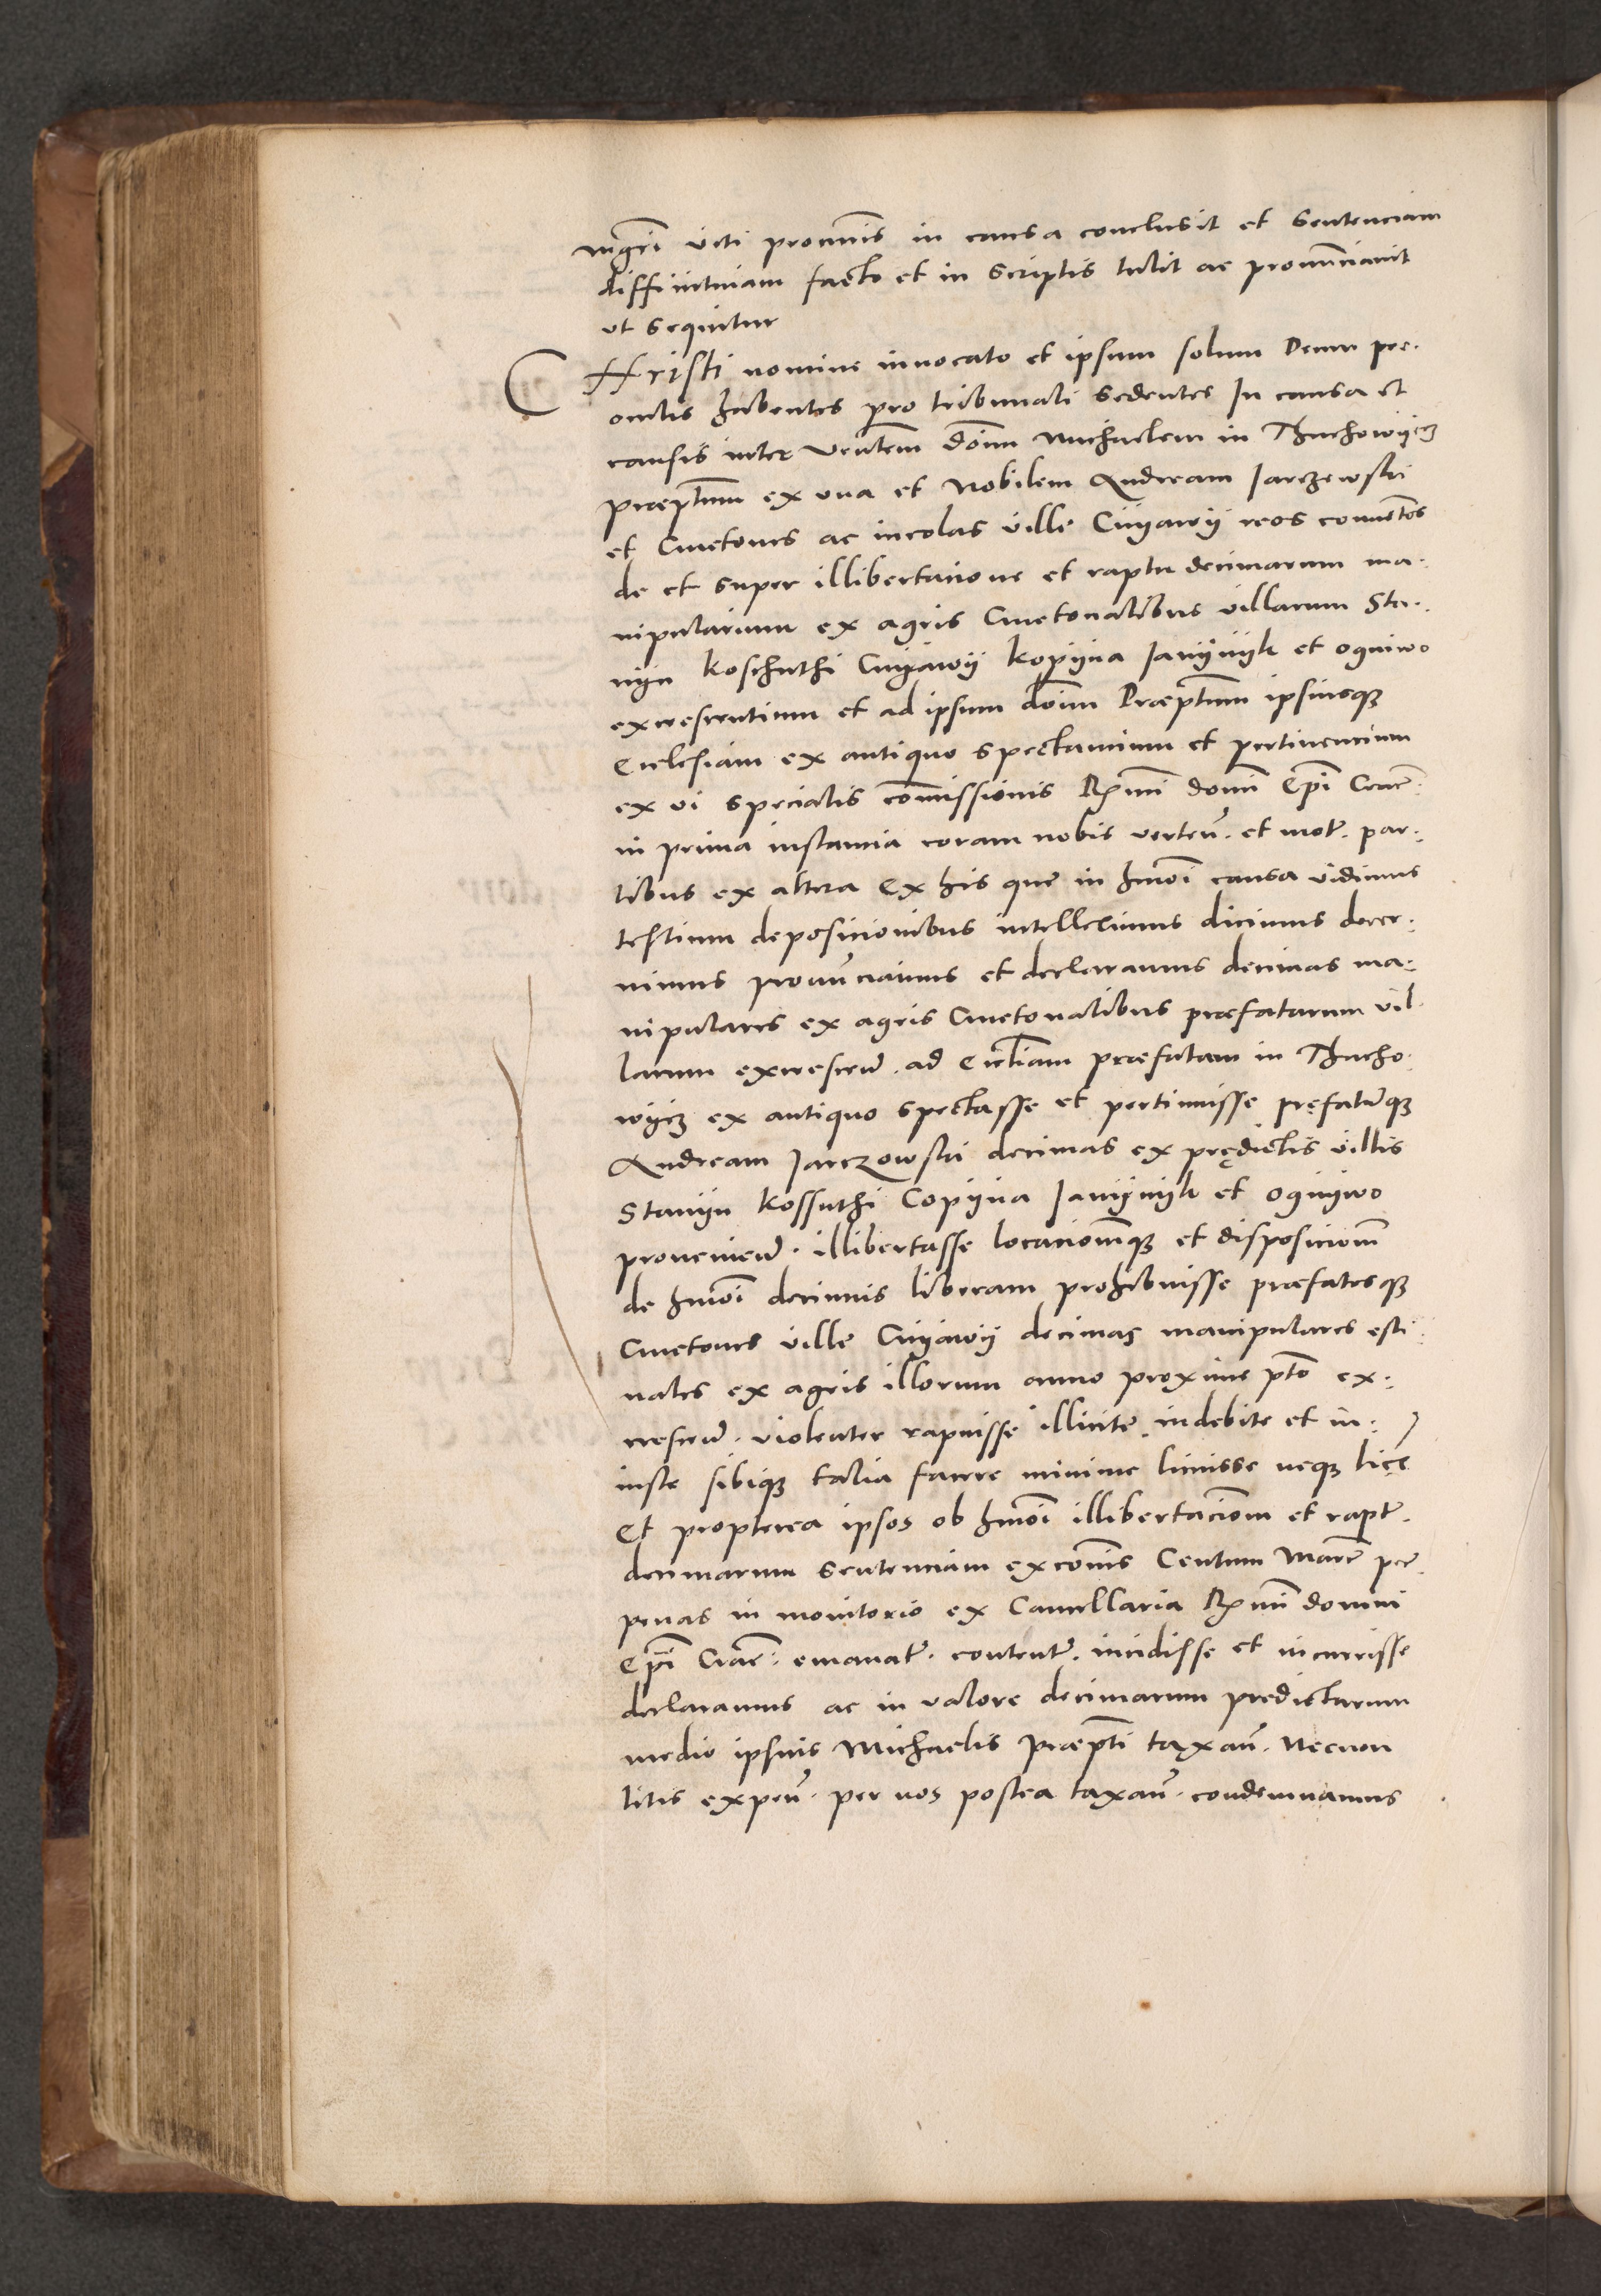 mgri viti procuris in causa conclusit et sentenciam
diffinitivam facto et in scriptis tulit ac pronunciavit
ut sequitur
CHristi nomine invocato et ipsum solum Deum pre.
oculis habentes pro tribunali sedentes In causa et
causis inter ventem domi Michaelem in Thuchowijcz
Præptum ex una et Nobilem Andream Jarczewski
et Cmetones ac incolas ville Cuyawij reos conventos
de et super illibertacione et raptu decimarum ma.
nipularium ex agris Cmetonalibus villarum Sta.
nijn Koschuthi Cuyawij Kopijna Janijnijk et ogniwo
excrescentium et ad ipsum doim Præptum ipsiusq
Ecclesiam ex antiquo spectancium et pertinencium
ex vi specialis comissionis Rmi domi Epi Crac.
in prima instancia coram nobis verten. et mot. par.
tibus ex altera Ex his que in hmoi causa vidimus
testium deposicionibus intelleximus dicimus decer.
nimus pronunciamus et declaramus decimas ma.
nipulares ex agris Cmetonalibus præfatarum vil.
larum excrescen. ad Ecctiam præfatam in Thucho.
wijcz ex antiquo spectasse et pertinuisse pręfatumq
Andream Jarczowski decimas ex prędictis villis
Stanijn Kossuthi Copijna Janijnijk et ognijwo
provenien. illibertasse locacionemq et disposicionem
de hmoi decimis liberam prohibuisse præfatosq
Cmetones ville Cuyawij decimas manipulares esti
vales ex agris illorum anno proxime pto ex.
crescen. violenter rapuisse illicite indebite et in.
iuste sibiq talia facere minime licuisse neq licę
Et propterea ipsos ob hmoi illibertaciom et rapt.
decimarum sentenciam excois Centum Marc pre
penas in monitorio ex Cancellaria Rmi domini
Epi Crac. emanat. content. incidisse et incurisse
declaramus ac in valore decimarum predictarum
medio ipsius Michaelis Præpti taxan. Necnon
litis expen. per nos postea taxan. condemnamus